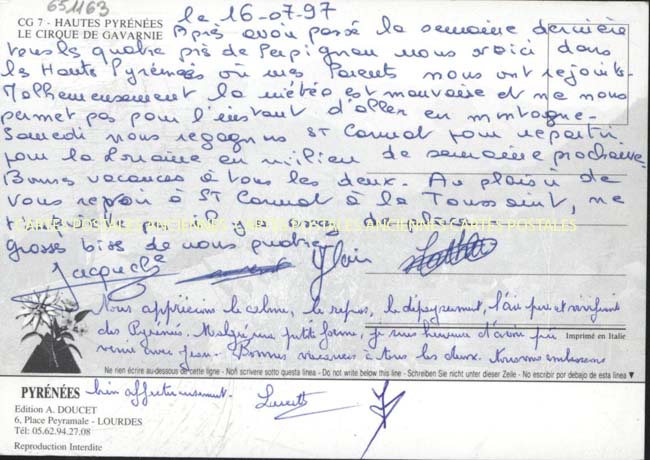 651163
CG 7 - HAUTES PYRÉNÉES
LE CIRQUE DE GAVARNIE
le 16-07-97
Après avoir passé la semaine dernière
tous les quatre près de Perpignan nous voici dans
les Hautes Pyrénées où mes Parents nous ont rejoints.
Malheureusement la météo est mauvaise et ne nous
permet pas pour l'instant d'aller en montagne.
Samedi nous regagnons St pour repartir
pour la Lorraine en milieu de semaine prochaine.
Bonnes vacances à tous les deux. Au plaisir de
vous revoir à St à la Toussaint, me
pas de place
CARTES POSTALES ANCIENNES CARTES POSTALES ANCIENNES CARTES POSTALES
grosses bises de nous quatre.
Jacqueline
Nous apprécions le calme, le repos, le dépaysement, l'air pur et vivifiant
des Pyrénées. Malgré ma petite forme, je suis heureuse d'avoir pu
Imprimé en Italie
venir avec Jean. Bonnes vacances à tous les deux. Nous vous embrassons
Ne rien écrire au-dessous de cette ligne - Non scrivere sotto questa linea - Do not write below this line - Schreiben Sie nicht unter dieser Zeile - No escribir por debajo de esta linea ▼
PYRÉNÉES
bien affectueusement.
Edition A. DOUCET
6, Place Peyramale - LOURDES
Tél: 05.62.94.27.08
Reproduction Interdite